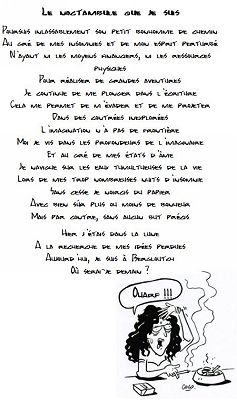 Le noctambule que je suis
Poursuis inlassablement son petit bonhomme de chemin
Au gré de mes insomnies et de mon esprit perturbé
N'ayant ni les moyens financiers, ni les ressources
physiques
Pour réaliser de grandes aventures
Je continue de me plonger dans l'écriture
Cela me permet de m'évader et de me projeter
Dans des contrées inexplorées
L'imagination n'a pas de frontière
Moi je vis dans les profondeurs de l'imaginaire
Et au gré de mes états d'âme
Je navigue sur les eaux tumultueuses de la vie
Lors de mes trop nombreuses nuits d'insomnie
Sans cesse je noircis du papier
Avec bien sûr plus ou moins de bonheur
Mais par contre, sans aucun but précis
Hier j'étais dans la lune
A la recherche de mes idées perdues
Aujourd'hui, je suis à Bergloutch
Où serai-je demain ?
Ouarf !!!